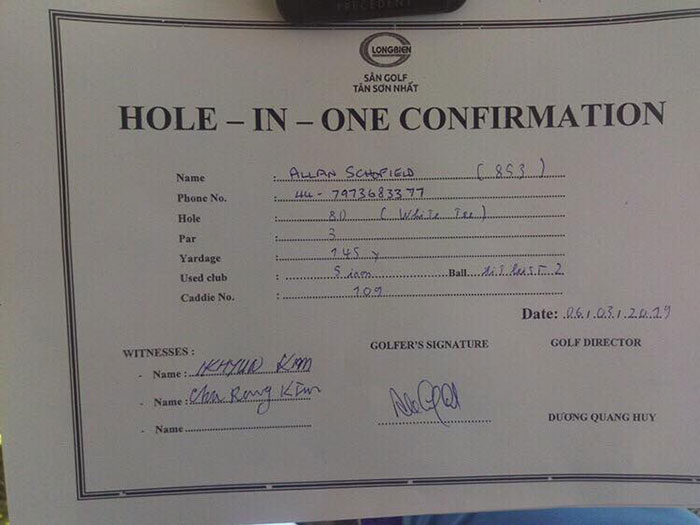 PRECEDENT
LONGBIEN
SÂN GOLF
TÂN SƠN NHẤT
HOLE – IN – ONE CONFIRMATION
Name : ALLAN SCHOFIELD (853)
Phone No. : 44 - 7973683377
Hole : 8D (White Tee)
Par : 3
Yardage : 145 y
Used club : 5 iron Ball
Caddie No. : 109
Date: 06.03.2019
WITNESSES : GOLFER'S SIGNATURE GOLF DIRECTOR
- Name : KIM
- Name : Cha Rang Kim
- Name
DƯƠNG QUANG HUY